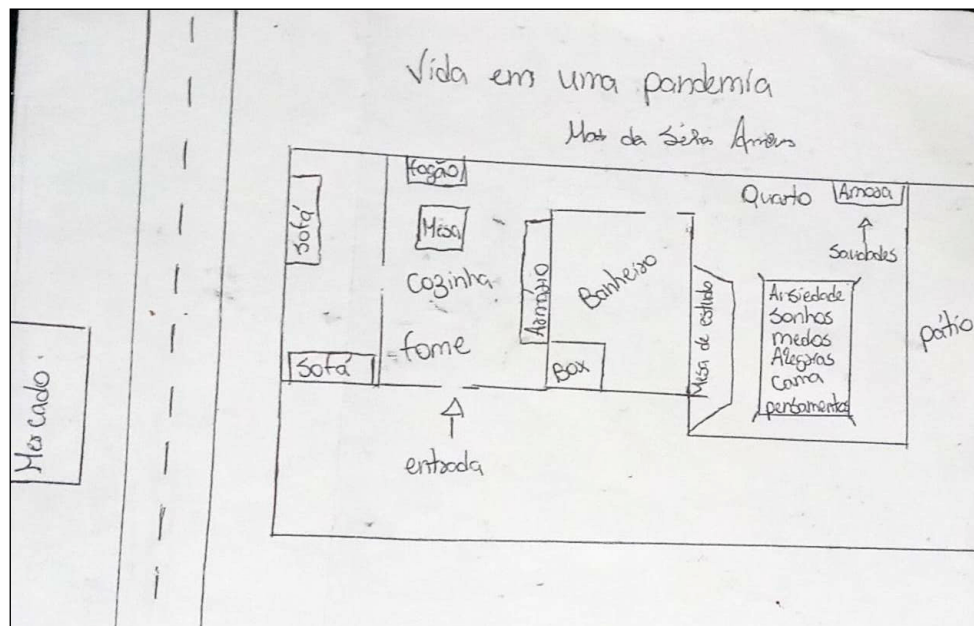 Vida em uma pandemia
da
fogão
Sofá
Mesa
Cozinha
fome
Sofá
entrada
Mercado
Armário
Banheiro
Box
Mesa de estudo
Quarto
Saudades
Ansiedade
Sonhos
medos
Alegrias
Cama
pensamentos
pátio